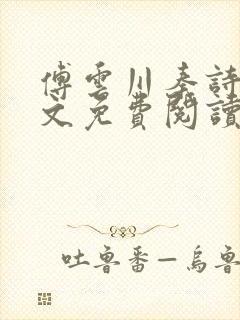 傅雲川秦詩
文免費閱讀
吐魯番—烏魯